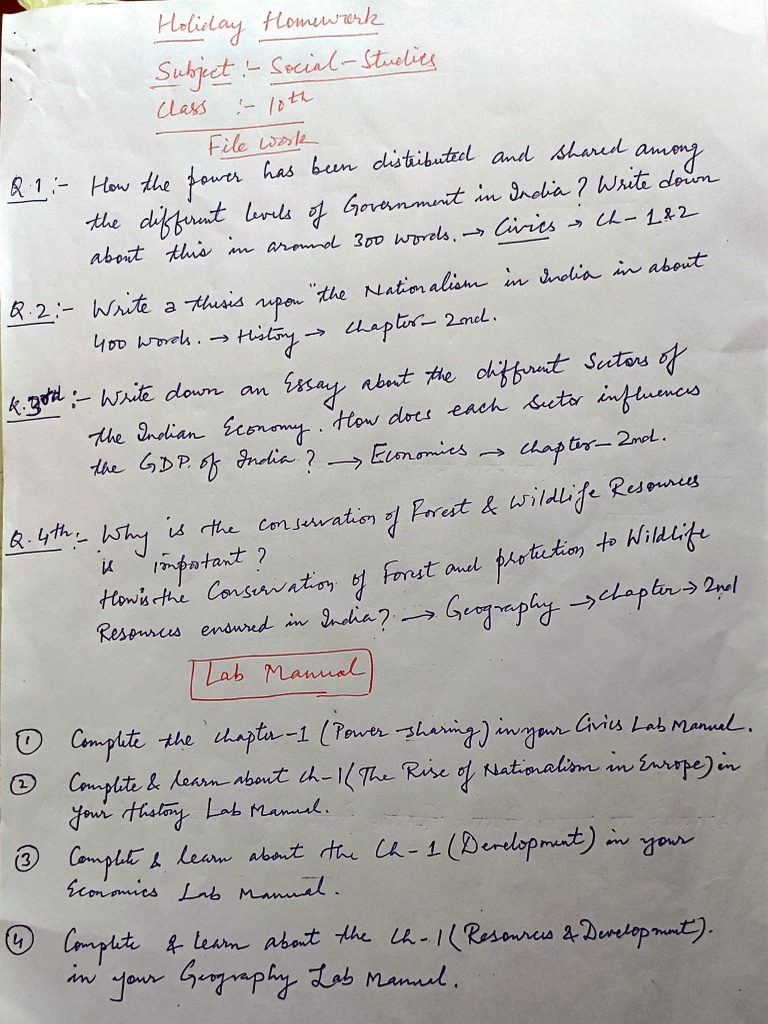 Holiday Homework
Subject :- Social-Studies
Class :- 10th
File Work
Q.1:- How the power has been distributed and shared among
the different levels of Government in India? Write down
about this in around 300 words. → Civics → Ch-1&2
Q.2:- Write a thesis upon "the Nationalism in India in about
400 words. → History → Chapter-2nd.
Q.3rd:- Write down an Essay about the different Sectors of
the Indian Economy. How does each sector influences
the GDP. of India? → Economics → chapter-2nd.
Q.4th:- Why is the conservation of Forest & Wildlife Resources
is important?
How is the Conservation of Forest and protection to Wildlife
Resources ensured in India? → Geography → chapter → 2nd
Lab Manual
① Complete the chapter-1 (Power-sharing) in your Civics Lab Manual.
② Complete & learn about ch-1 (The Rise of Nationalism in Europe) in
your History Lab Manual.
③ Complete & learn about the Ch-1 (Development) in your
Economics Lab Manual.
④ Complete & learn about the Ch-1 (Resources & Development).
in your Geography Lab Manual.